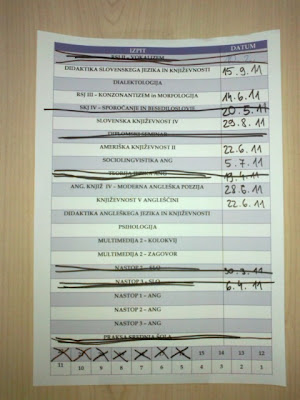 IZPITI DATUM
DIDAKTIKA SLOVENSKEGA JEZIKA IN KNJIŽEVNOSTI 15.9.11
DIALEKTOLOGIJA
RSJ III – KONZONANTIZEM in MORFOLOGIJA 14.6.11
SKJ IV – SPOROČANJE IN BESEDILOSLOVJE 20.5.11
SLOVENSKA KNJIŽEVNOST IV 29.8.11
DIPLOMSKI SEMINAR
AMERIŠKA KNJIŽEVNOST II 22.6.11
SOCIOLINGVISTIKA ANG 5.7.11
19.4.11
ANG. KNJIŽ IV – MODERNA ANGLEŠKA POEZIJA 28.6.11
KNJIŽEVNOST V ANGLEŠČINI 22.6.11
DIDAKTIKA ANGLEŠKEGA JEZIKA IN KNJIŽEVNOSTI
PSIHOLOGIJA
MULTIMEDIJA 2 – KOLOKVIJ
MULTIMEDIJA 2 – ZAGOVOR
NASTOP 2 – SLO 30.3.11
NASTOP 3 – SLO 6.4.11
NASTOP 1 – ANG
NASTOP 2 – ANG
NASTOP 3 – ANG
PRAKSA SREDNJA ŠOLA
15 14 13 12
11 10 9 8 7 6 5 4 3 2 1